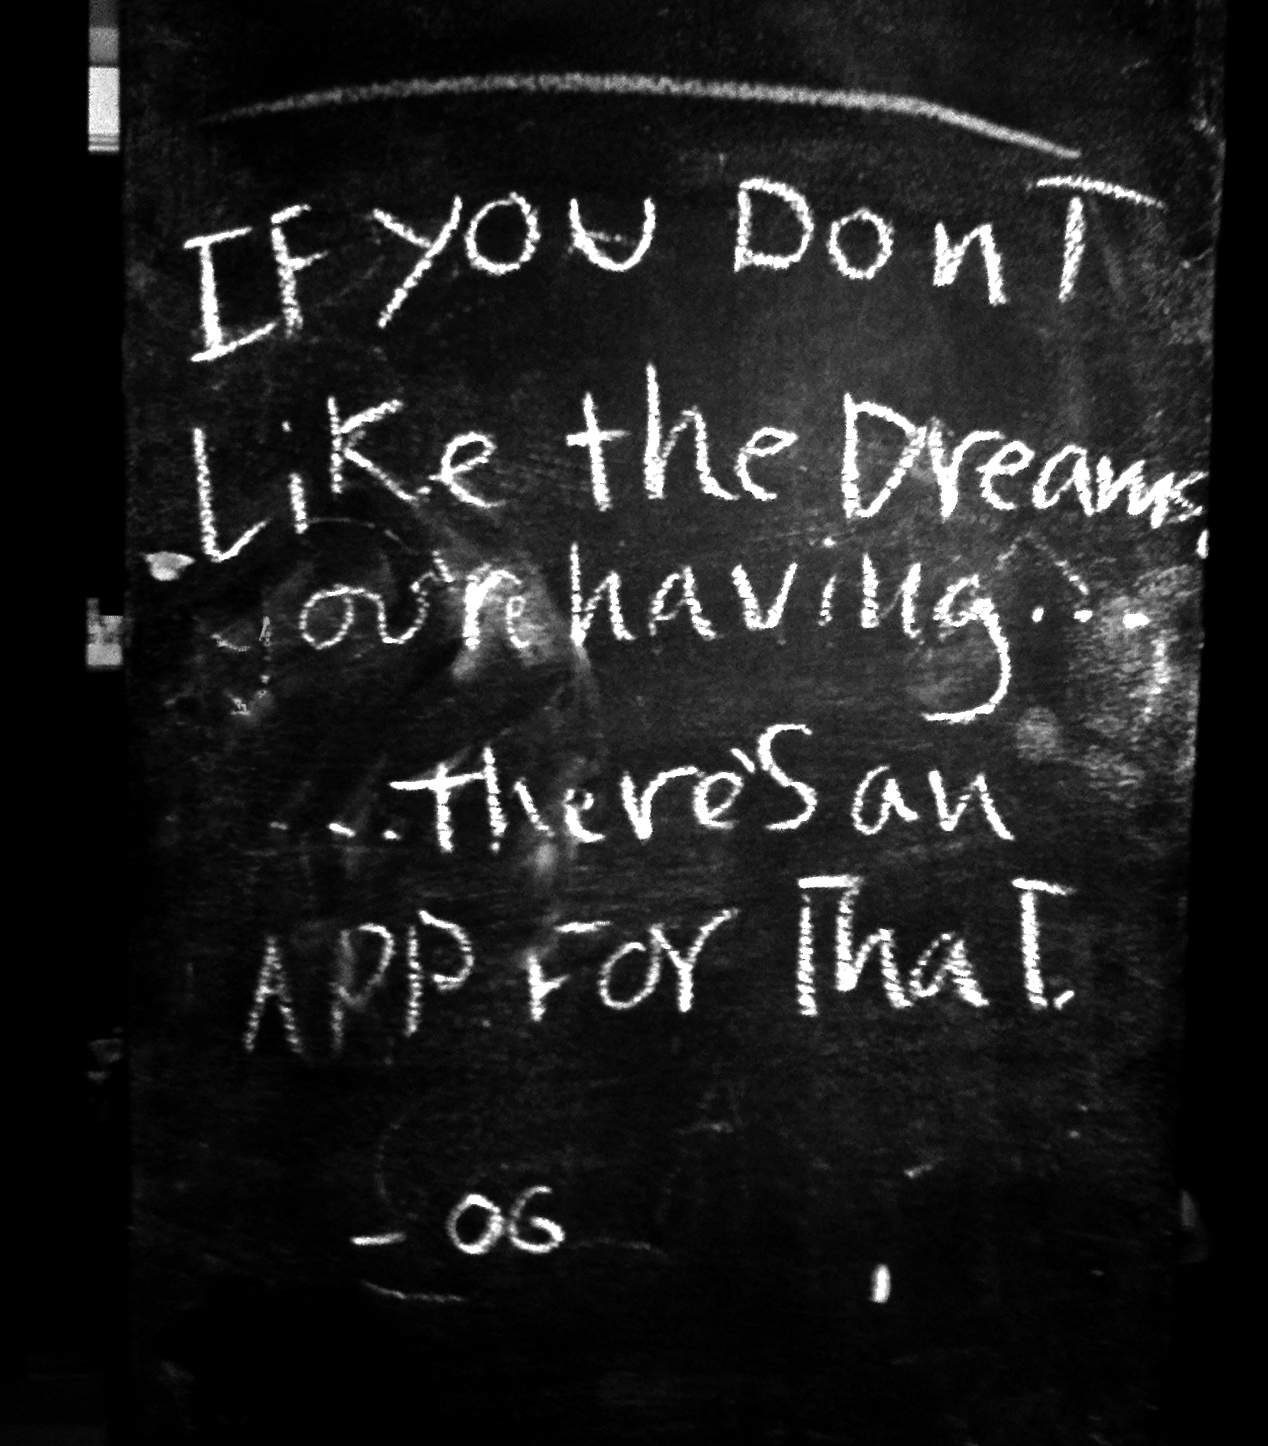 IF YOU DonT
Like the Dreams
you're having...
...there's an
APP For ThaT.
- OG